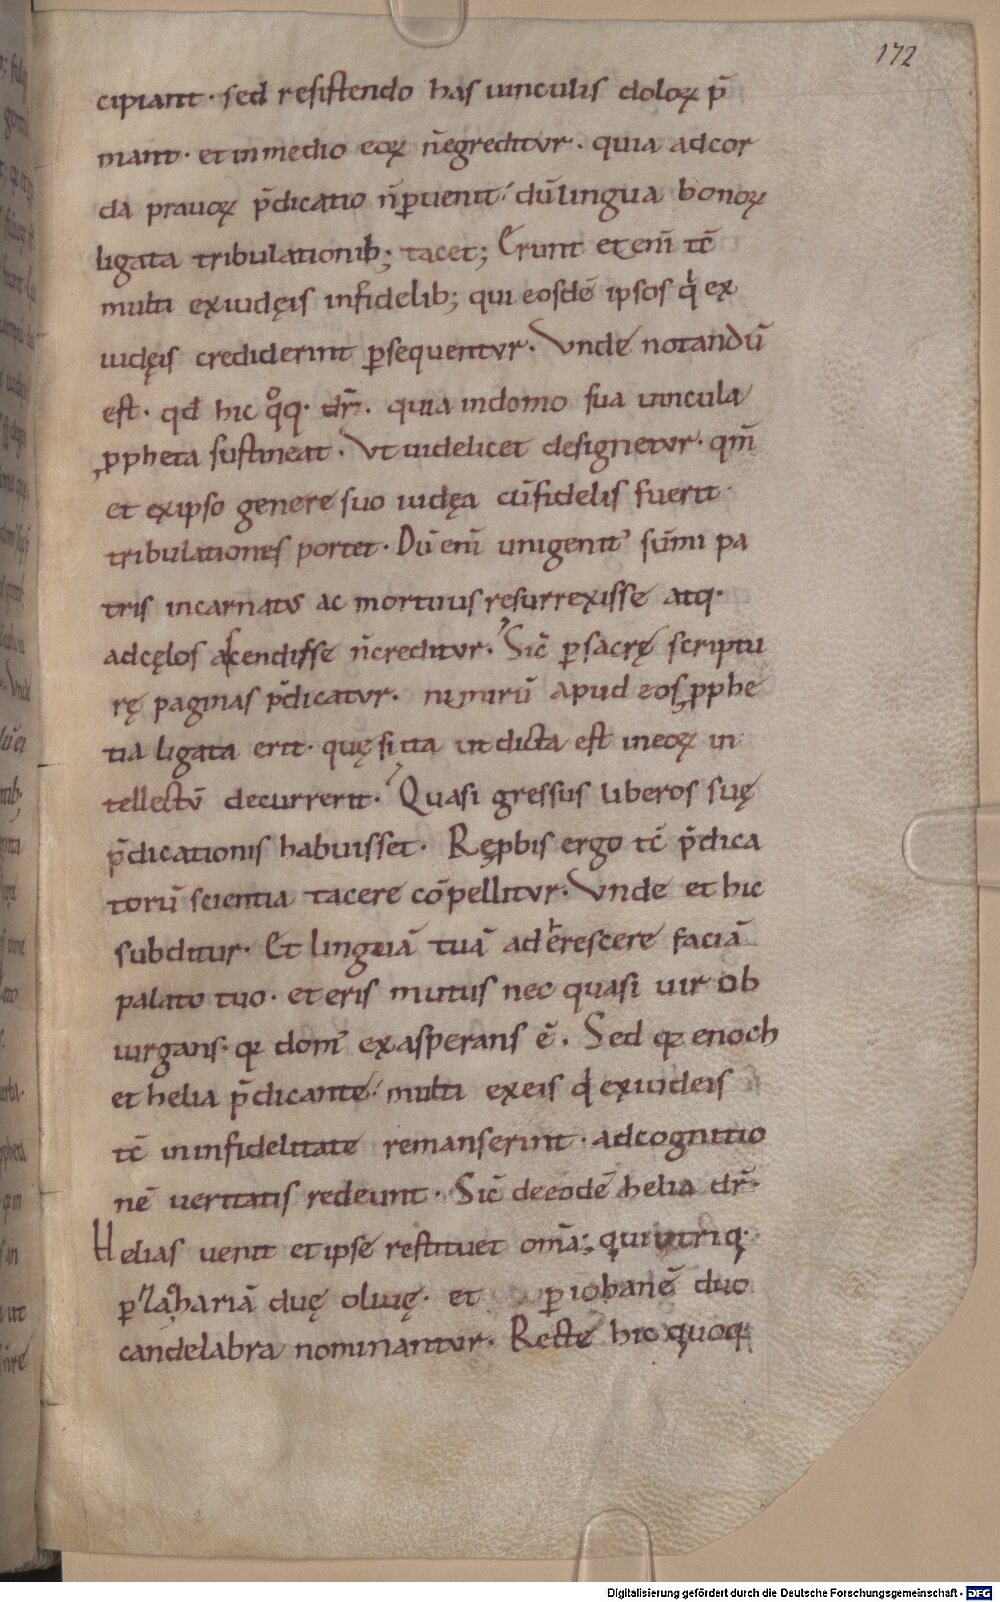 172
cipiant · sed resistendo has uinculis doloꝝ p̄
mant · et in medio eoꝝ n̄ egreditur · quia ad cor
da prauoꝝ p̄dicatio n̄ ꝑtienit · dū lingua bonoꝝ
ligata tribulationib; tacet; Erunt et eni̅ tc̄
multi ex iudęis infidelib; qui eosdē ipsos q̇ ex
iudęis crediderint ꝑsequentur · Vnde notandū
est · qd̄ hic qͦq · dr̄ · quia in domo sua uincula
ꝓpheta sustineat · Vt uidelicet designetur · qm̄
et ex ipso genere suo iudęa cū fidelis fuerit
tribulationes portet · Dū eni̅ unigenit᾿ sūmi pa
tris incarnatus ac mortuus resurrexisse atq·
ad cęlos ascendisse n̄ creditur · Sic̄ ꝑ sacrę scriptu
rę paginas p̄dicatur · nimirū apud eos ꝓphe
tia ligata erit · quę si ita ut dicta est in eoꝝ in
tellectū decurrerit · Quasi gressus liberos suę
p̄dicationis habuisset · Ręp̱bis ergo tc̄ p̄dica
torū scientia tacere cōpellitur · Vnde et hic
subditur · Et linguā tuā adherescere faciā
palato tuo · et eris mutus nec quasi uir ob
iurgans · qꝛ dom᾿ exasperans ē · Sed qꝛ enoch
et helia p̄dicante · multi ex eis q̇ ex iudeis
tc̄ in infidelitate remanserint · ad cognitio
nē ueritatis redeunt · Sic̄ de eodē helia dr̄ ·
Helias uenit et ipse restituet om̄a; qui utriq·
ꝑ zachariā duę oliuę · et ꝑ iohanē duo
candelabra nominantur · Recte hic quoq·
Digitalisierung gefördert durch die Deutsche Forschungsgemeinschaft - DFG